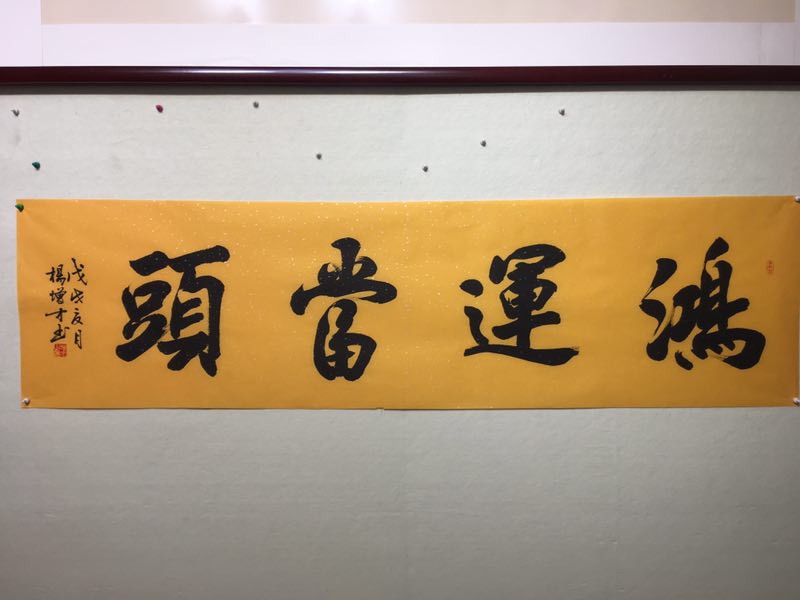 鴻運當頭
戊戌夏月
楊增才書